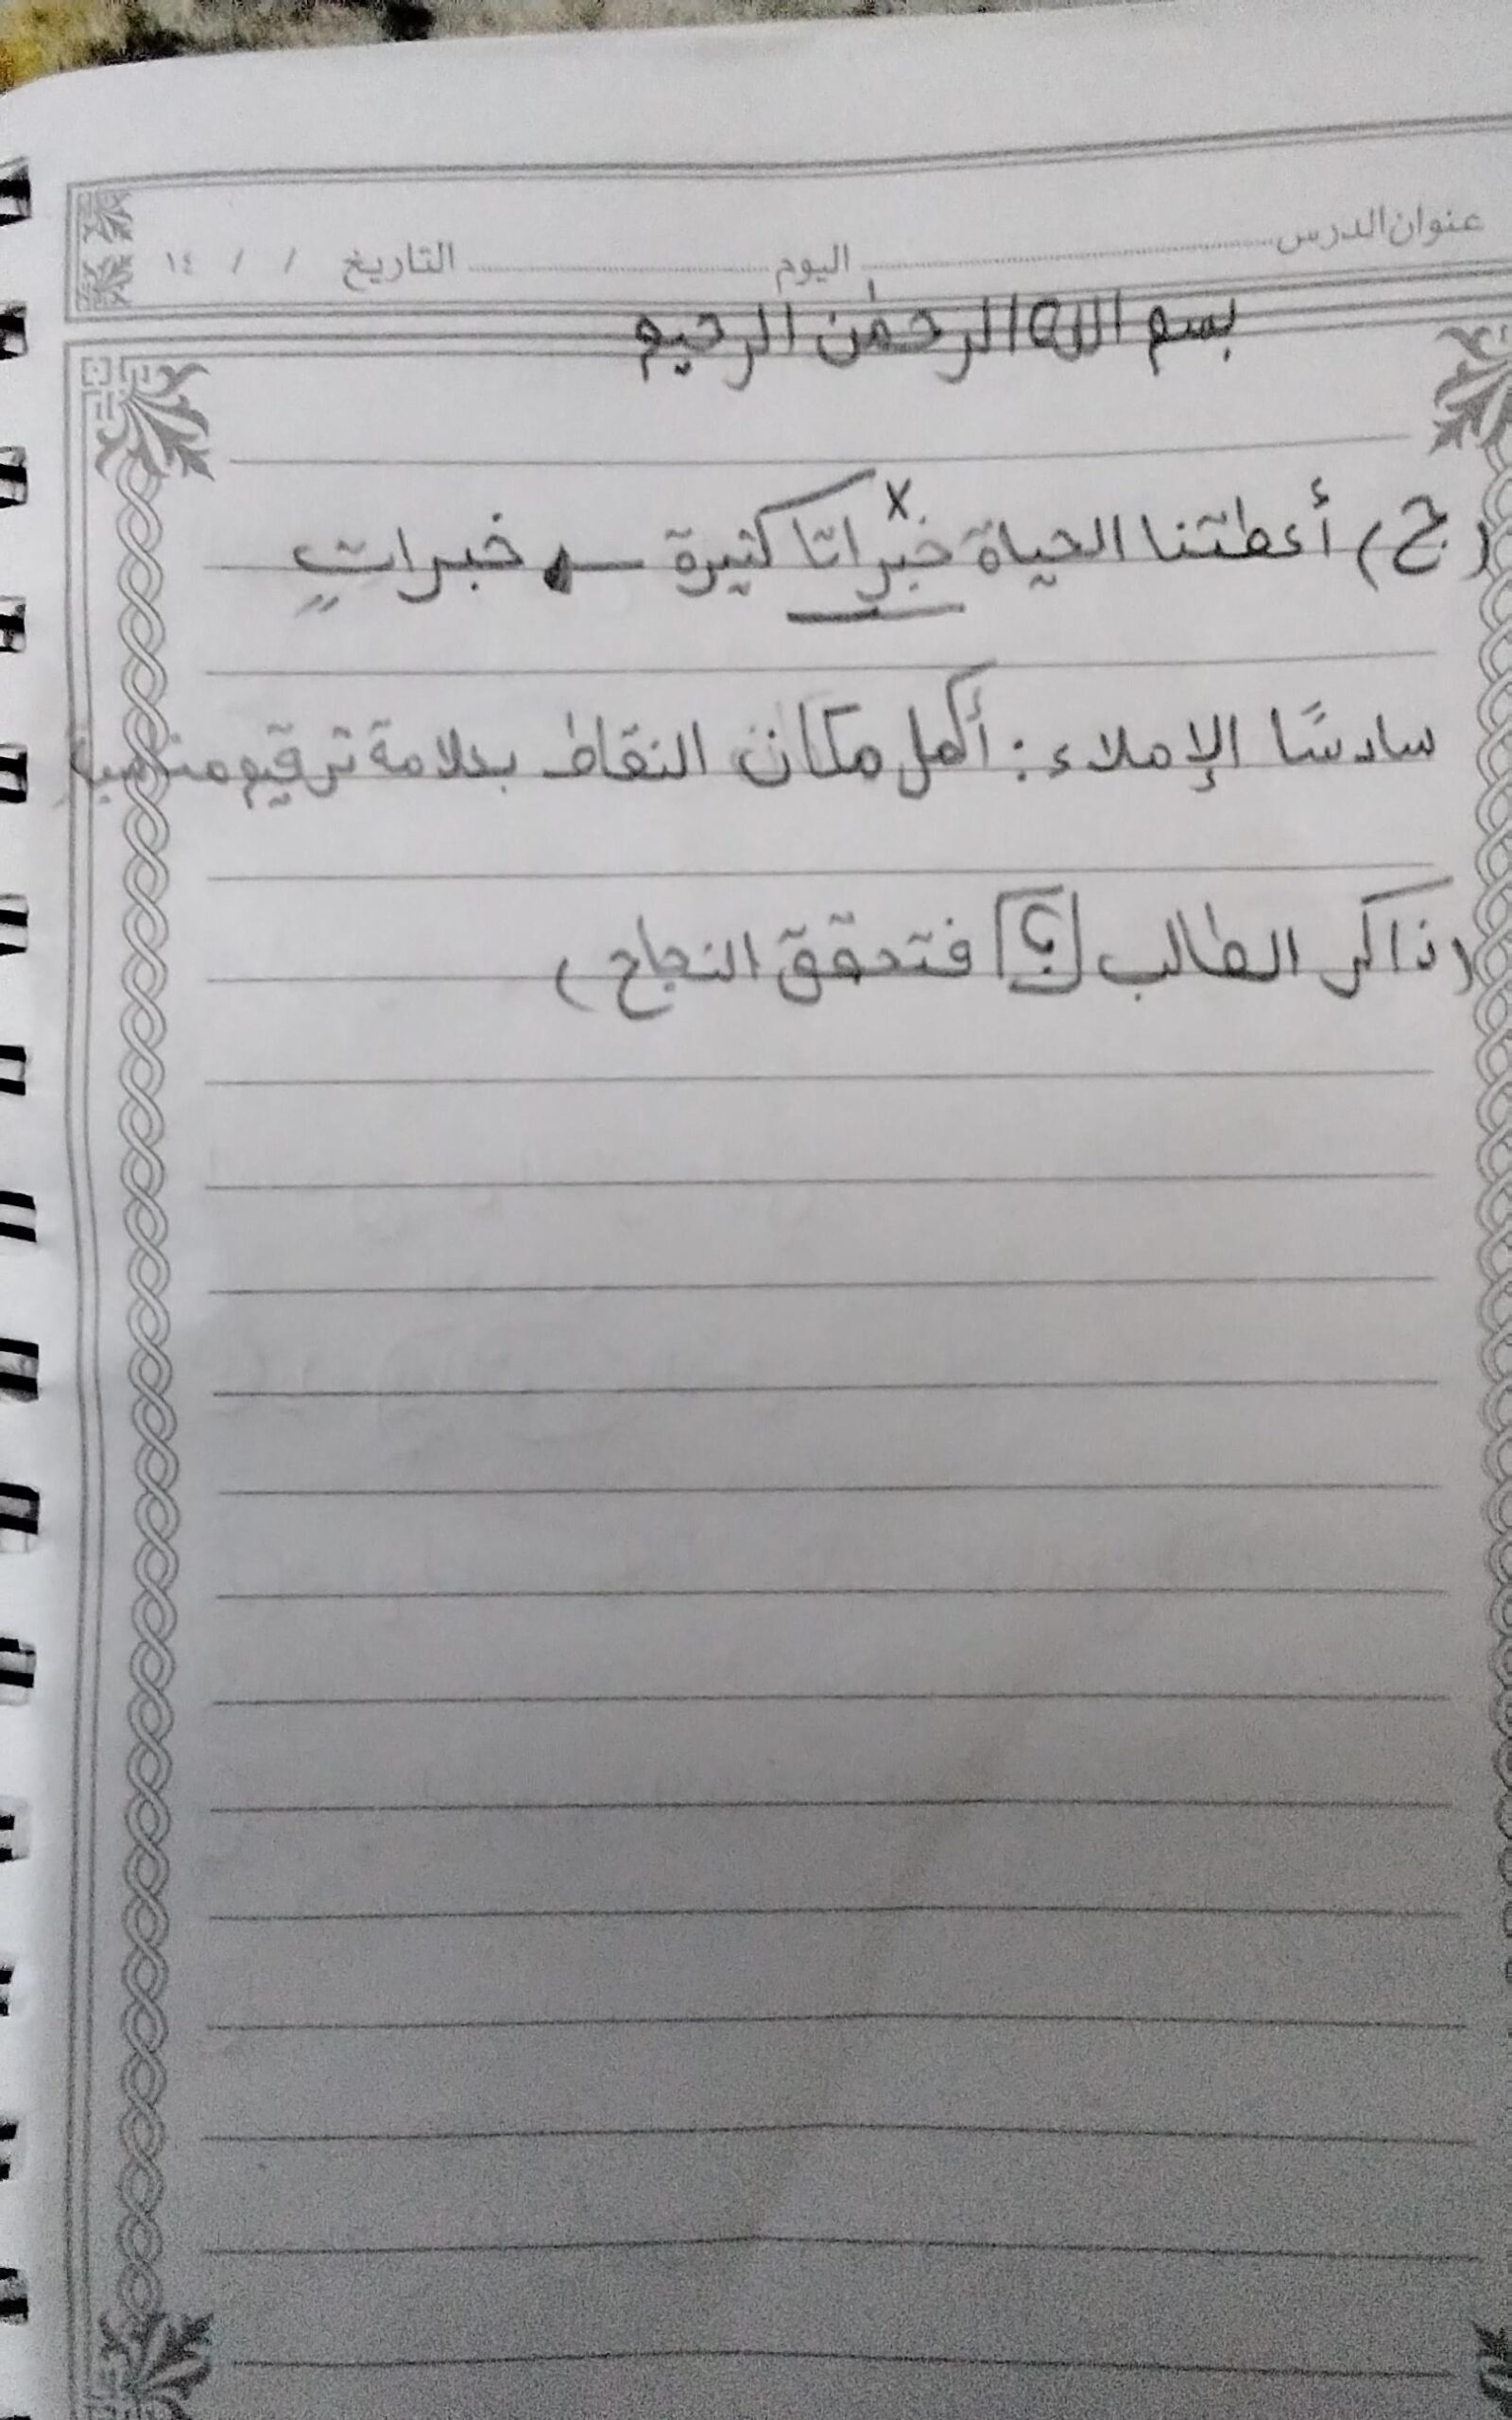 عنوان الدرس ........................ اليوم ........................ التاريخ / / ١٤
بسم الله الرحمٰن الرحيم
(ج) أعطتنا الحياة خبراتا كثيرة ← خبراتٍ
x
سادسًا الإملاء: أكمل مكان النقاط بعلامة ترقيم مناسبة
(ذاكر الطالب [؟] فتحقق النجاح)